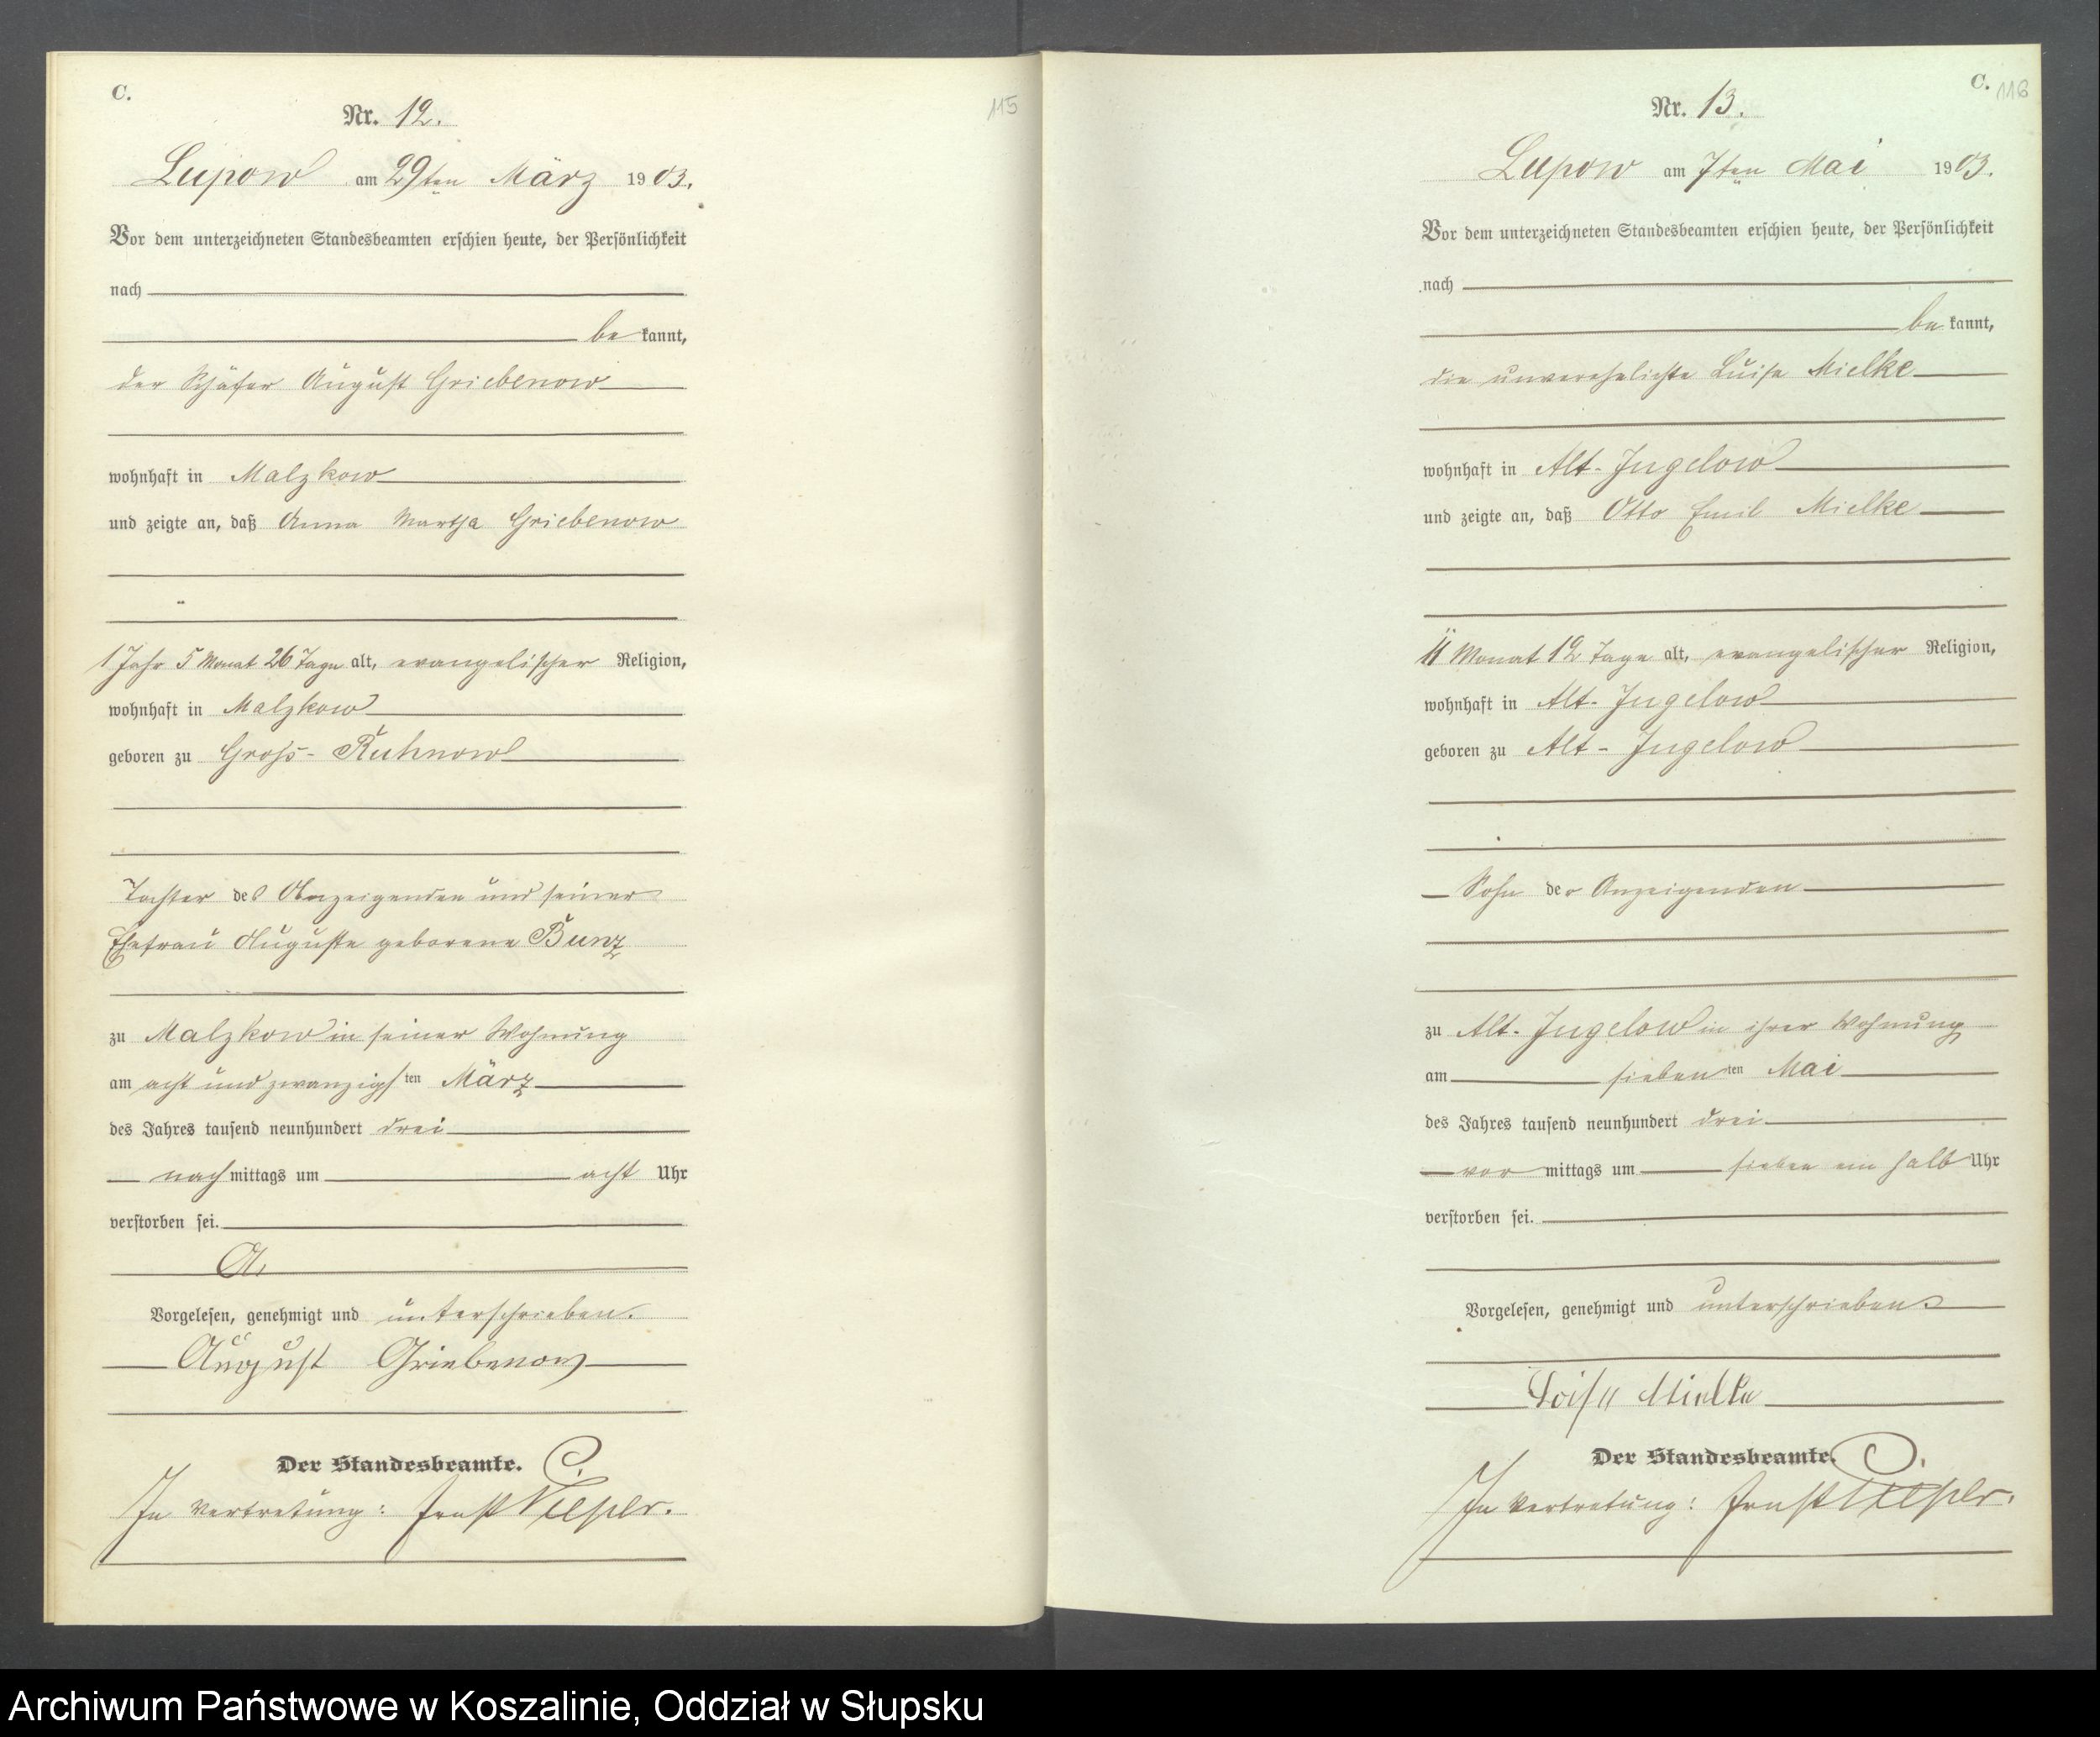 C.
115
Nr. 12.
Lupow am 29ten März 1903.
Vor dem unterzeichneten Standesbeamten erschien heute, der Persönlichkeit
nach
be kannt,
der Schäfer August Griebenow
wohnhaft in Malzkow
und zeigte an, daß Anna Martha Griebenow
1 Jahr 5 Monat 26 Tage alt, evangelischer Religion,
wohnhaft in Malzkow
geboren zu Gross-Ruhnow
Tochter des Anzeigenden und seiner
Ehefrau Auguste geborene Bunz
zu Malzkow in seiner Wohnung
am acht und zwanzigsten März
des Jahres tausend neunhundert drei
nach mittags um acht Uhr
verstorben sei.
Vorgelesen, genehmigt und unterschrieben.
August Griebenow
Der Standesbeamte.
In Vertretung: Ernst Piepler.
C.
116
Nr. 13.
Lupow am 7ten Mai 1903.
Vor dem unterzeichneten Standesbeamten erschien heute, der Persönlichkeit
nach
be kannt,
die unverehelichte Luise Mielke
wohnhaft in Alt-Jugelow
und zeigte an, daß Otto Emil Mielke
11 Monat 12 Tage alt, evangelischer Religion,
wohnhaft in Alt-Jugelow
geboren zu Alt-Jugelow
Sohn der Anzeigenden
zu Alt-Jugelow in ihrer Wohnung
am siebenten Mai
des Jahres tausend neunhundert drei
vor mittags um sieben ein halb Uhr
verstorben sei.
Vorgelesen, genehmigt und unterschrieben
Loise Mielke
Der Standesbeamte.
In Vertretung: Ernst Piepler.
Archiwum Państwowe w Koszalinie, Oddział w Słupsku